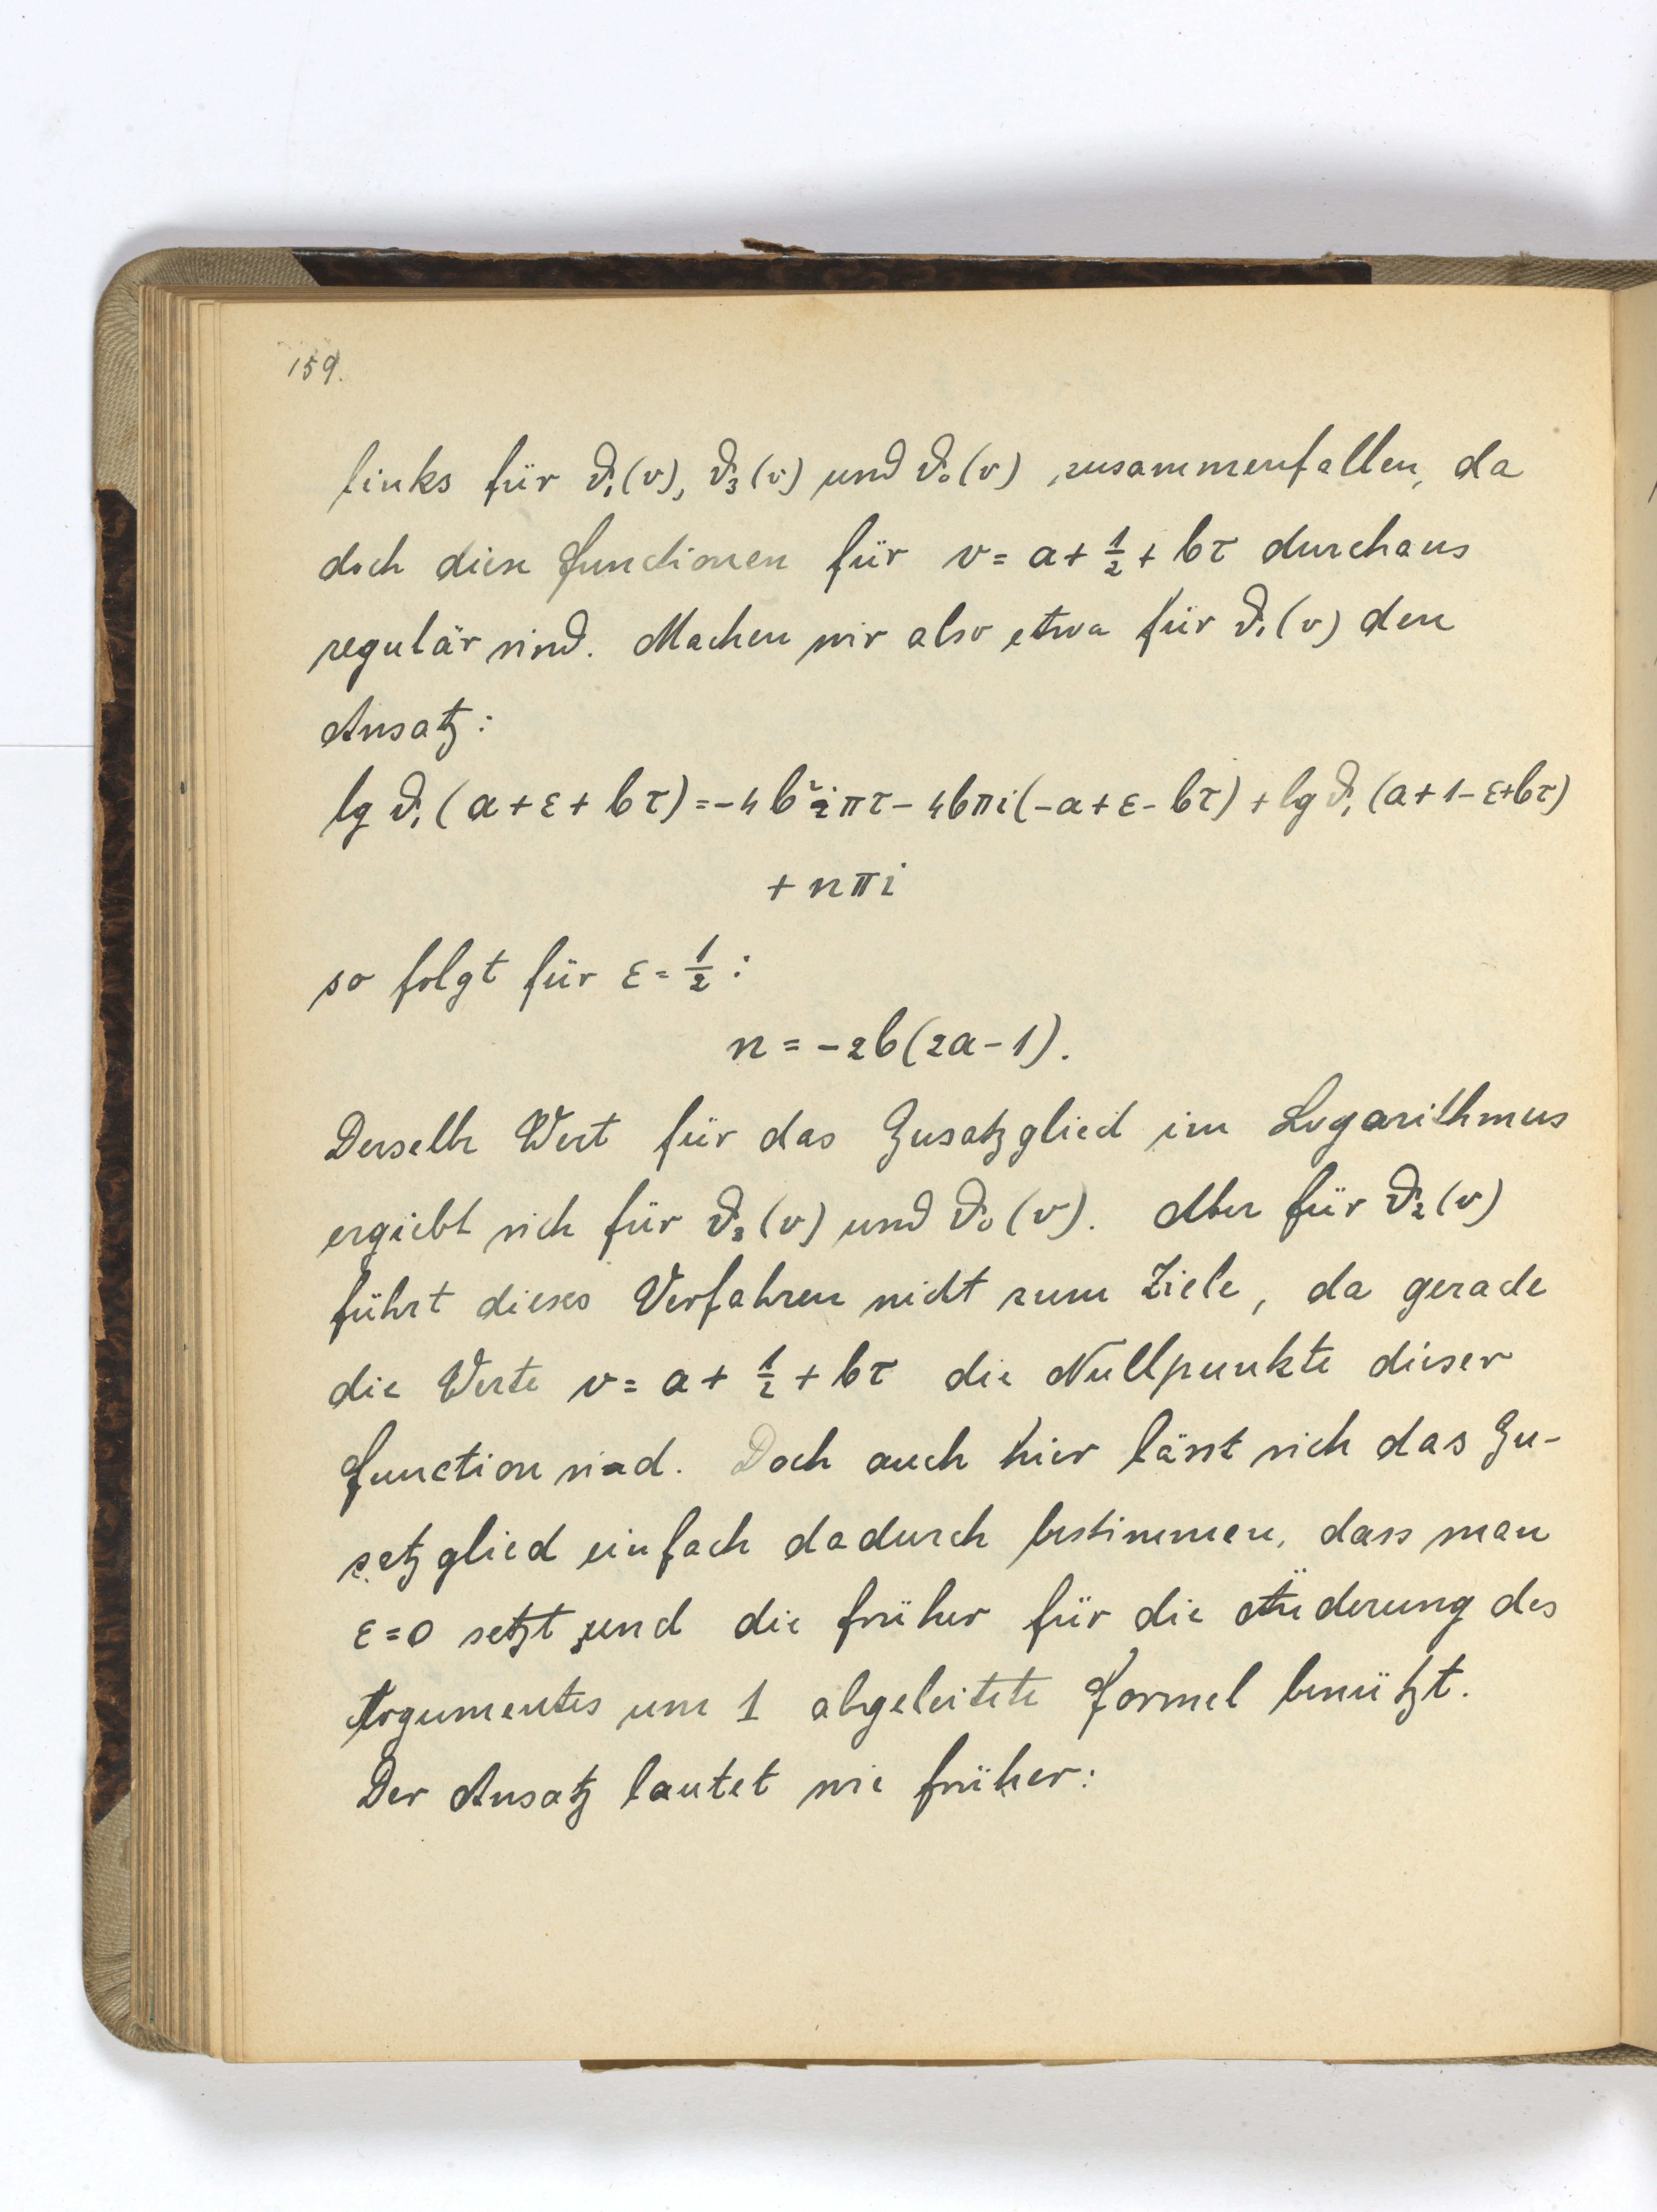 159.
links für ϑ₁(v), ϑ₃(v) und ϑ₀(v) zusammenfallen, da
doch diese Functionen für v = a + 1/2 + bτ durchaus
regulär sind. Machen wir also etwa für ϑ₁(v) den
Ansatz:
lg ϑ₁(a + ε + bτ) = -4b²iπτ - 4bπi(-a + ε - bτ) + lg ϑ₁(a + 1 - ε + bτ)
+ nπi
so folgt für ε = 1/2 :
n = -2b(2a - 1).
Derselbe Wert für das Zusatzglied im Logarithmus
ergiebt sich für ϑ₃(v) und ϑ₀(v). Aber für ϑ₂(v)
führt dieses Verfahren nicht zum Ziele, da gerade
die Werte v = a + 1/2 + bτ die Nullpunkte dieser
Function sind. Doch auch hier lässt sich das Zu-
satzglied einfach dadurch bestimmen, dass man
ε = 0 setzt und die früher für die Änderung des
Argumentes um 1 abgeleitete Formel benützt.
Der Ansatz lautet wie früher: